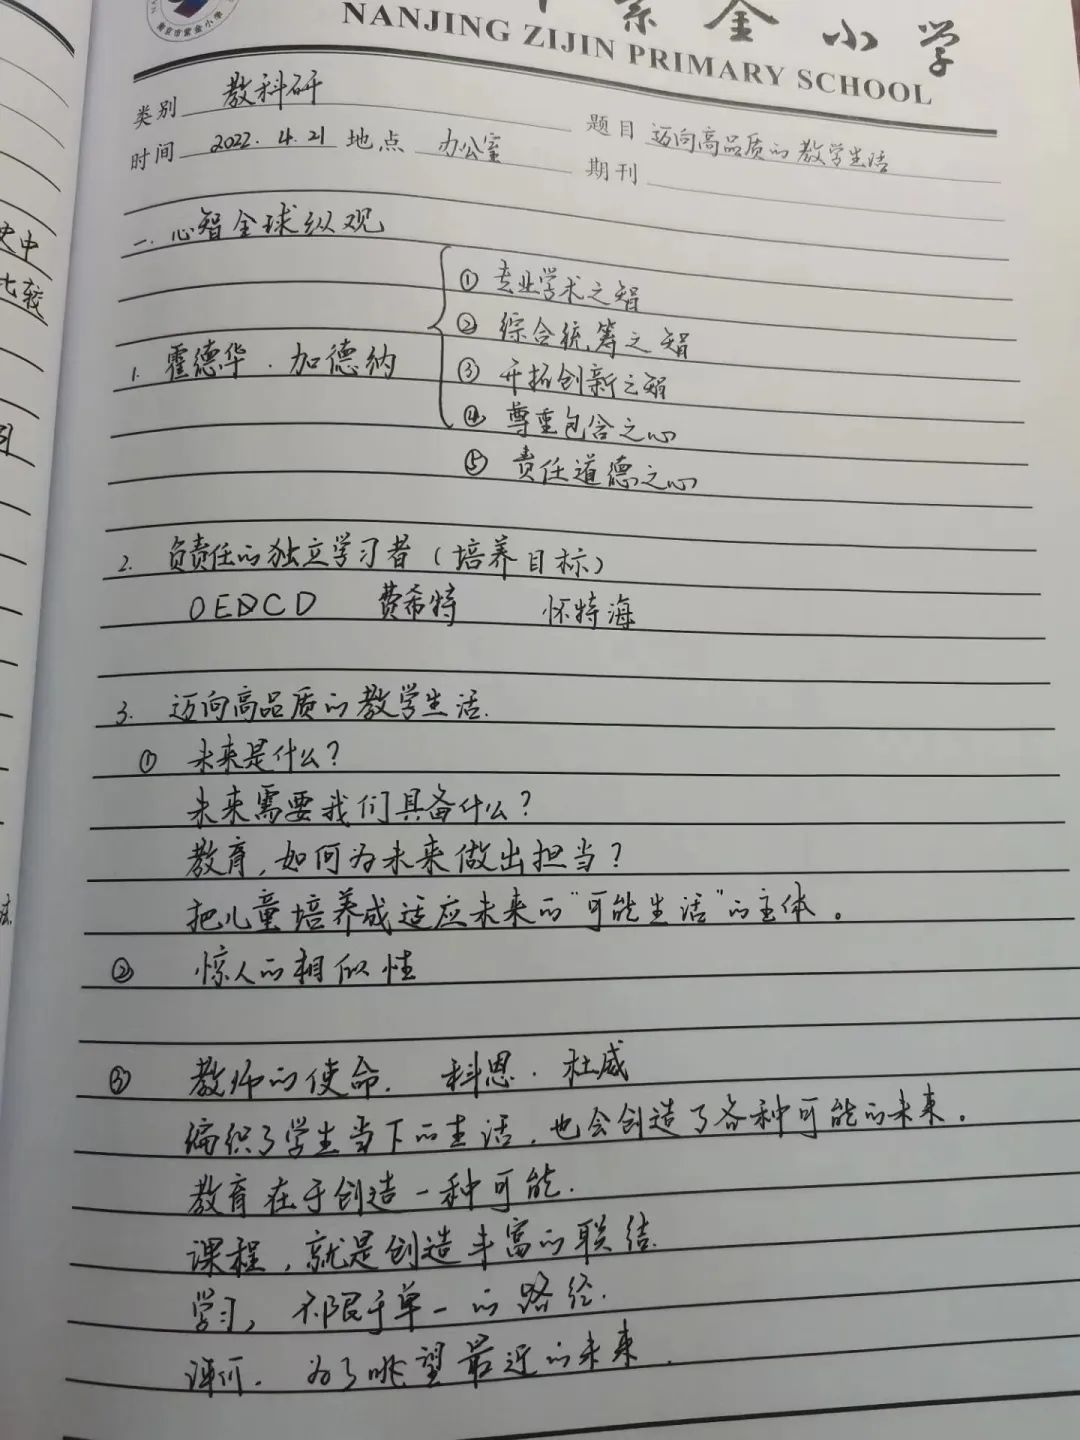 南京市紫金小学
紫金小学
NANJING ZIJIN PRIMARY SCHOOL
类别 教科研
题目 迈向高品质的教学生活
时间 2022.4.21 地点 办公室
期刊
一.心智全球纵观
① 专业学术之智
② 综合统筹之智
1. 霍德华.加德纳
③ 开拓创新之智
④ 尊重包含之心
⑤ 责任道德之心
2. 负责任的独立学习者(培养目标)
OEDCD 费希特 怀特海
3. 迈向高品质的教学生活.
① 未来是什么?
未来需要我们具备什么?
教育,如何为未来做出担当?
把儿童培养成适应未来的"可能生活"的主体。
② 惊人的相似性
③ 教师的使命. 科恩.杜威
编织了学生当下的生活,也会创造了各种可能的未来.
教育在于创造一种可能.
课程,就是创造丰富的联结.
学习,不限于单一的路径.
评价.为了眺望最近的未来.
史中
比较